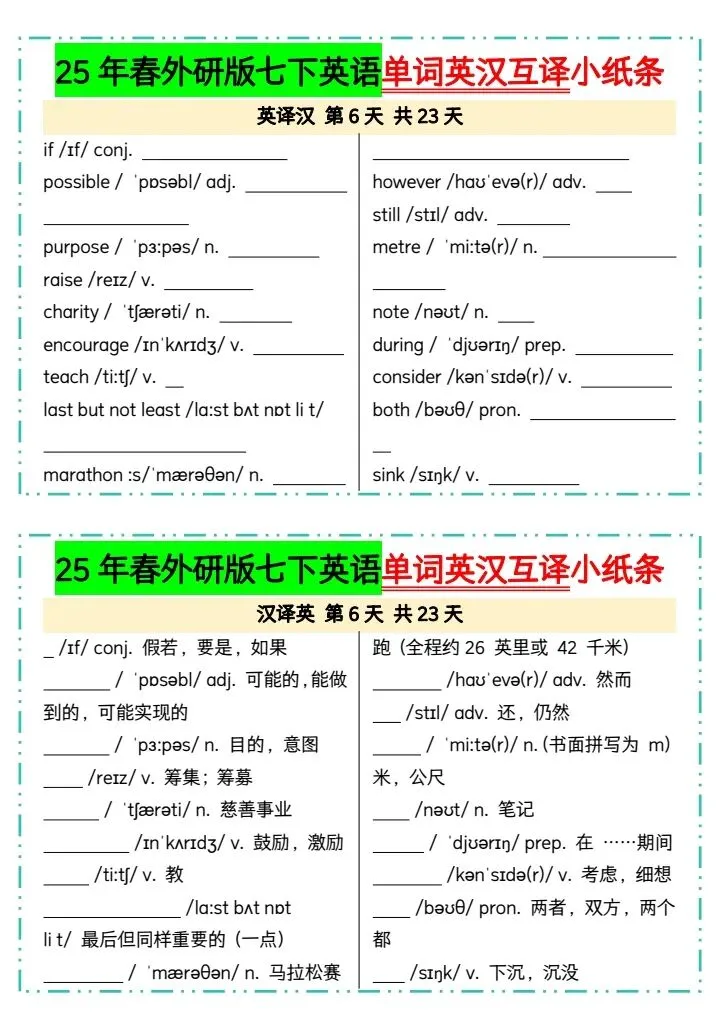 25 年春外研版七下英语单词英汉互译小纸条
英译汉 第 6 天 共 23 天
if /ɪf/ conj. ________________
possible / ˈpɒsəbl/ adj. ___________
________________
purpose / ˈpɜːpəs/ n. __________
raise /reɪz/ v. __________
charity / ˈtʃærəti/ n. ________
encourage /ɪnˈkʌrɪdʒ/ v. __________
teach /tiːtʃ/ v. __
last but not least /lɑːst bʌt nɒt li t/
______________________
marathon :s/ˈmærəθən/ n. ________
____________________________
however /haʊˈevə(r)/ adv. ____
still /stɪl/ adv. ________
metre / ˈmiːtə(r)/ n. ______________
________
note /nəʊt/ n. ____
during / ˈdjʊərɪŋ/ prep. __________
consider /kənˈsɪdə(r)/ v. __________
both /bəʊθ/ pron. ________________
__
sink /sɪŋk/ v. __________
25 年春外研版七下英语单词英汉互译小纸条
汉译英 第 6 天 共 23 天
_ /ɪf/ conj. 假若，要是，如果
_______ / ˈpɒsəbl/ adj. 可能的，能做
到的，可能实现的
_______ / ˈpɜːpəs/ n. 目的，意图
____ /reɪz/ v. 筹集；筹募
______ / ˈtʃærəti/ n. 慈善事业
____________ /ɪnˈkʌrɪdʒ/ v. 鼓励，激励
_____ /tiːtʃ/ v. 教
_______________ /lɑːst bʌt nɒt
li t/ 最后但同样重要的（一点）
_________ / ˈmærəθən/ n. 马拉松赛
跑（全程约 26 英里或 42 千米）
_______ /haʊˈevə(r)/ adv. 然而
___ /stɪl/ adv. 还，仍然
_____ / ˈmiːtə(r)/ n. (书面拼写为 m)
米，公尺
____ /nəʊt/ n. 笔记
______ / ˈdjʊərɪŋ/ prep. 在 ……期间
_______ /kənˈsɪdə(r)/ v. 考虑，细想
____ /bəʊθ/ pron. 两者，双方，两个
都
___ /sɪŋk/ v. 下沉，沉没